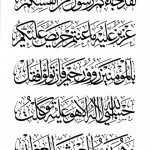 لقد جاءكم رسول من أنفسكم
عزيز عليه ما عنتم حريص عليكم
بالمؤمنين رؤوف رحيم فإن تولوا فقل
حسبي الله لا إله إلا هو عليه توكلت
وهو رب العرش العظيم